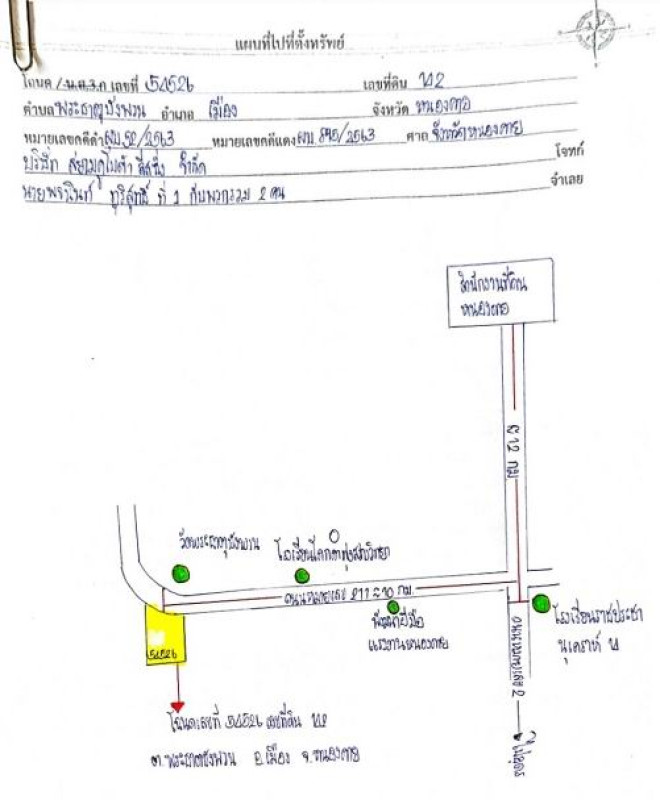 แผนที่ไปที่ตั้งทรัพย์
โฉนด / น.ส.3.ก เลขที่ 54526 เลขที่ดิน 142
ตำบล พระธาตุบังพวน อำเภอ เมือง จังหวัด หนองคาย
หมายเลขคดีดำ ผบ.52/2563 หมายเลขคดีแดง ผบ. /2563 ศาล จังหวัดหนองคาย
บริษัท สยามคูโบต้า ลีสซิ่ง จำกัด โจทก์
นาย ที่ 1 กับพวกรวม 2 คน จำเลย
สำนักงานที่ดิน
หนองคาย
12 กม
วัดพระธาตุบังพวน
ถนนหมายเลข 211 ะ10 กม.
พัฒนาฝีมือ
แรงงานหนองคาย
โรงเรียนราชประชา
นุเคราห์
ถนนหมายเลข 2
ไปอุดร
54526
โฉนดเลขที่ 54526 เลขที่ดิน 142
ต.พระธาตุบังพวน อ.เมือง จ.หนองคาย